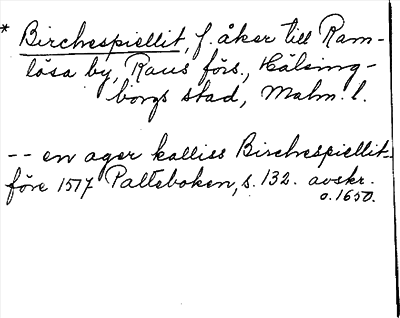 * Birchespiellit, f. åker till Ram-
lösa by, Raus förs., Hälsing-
borgs stad, Malm. l.
-- en ager kalliss Birchespiellit
före 1517 Palteboken, s. 132. avskr.
o. 1650.